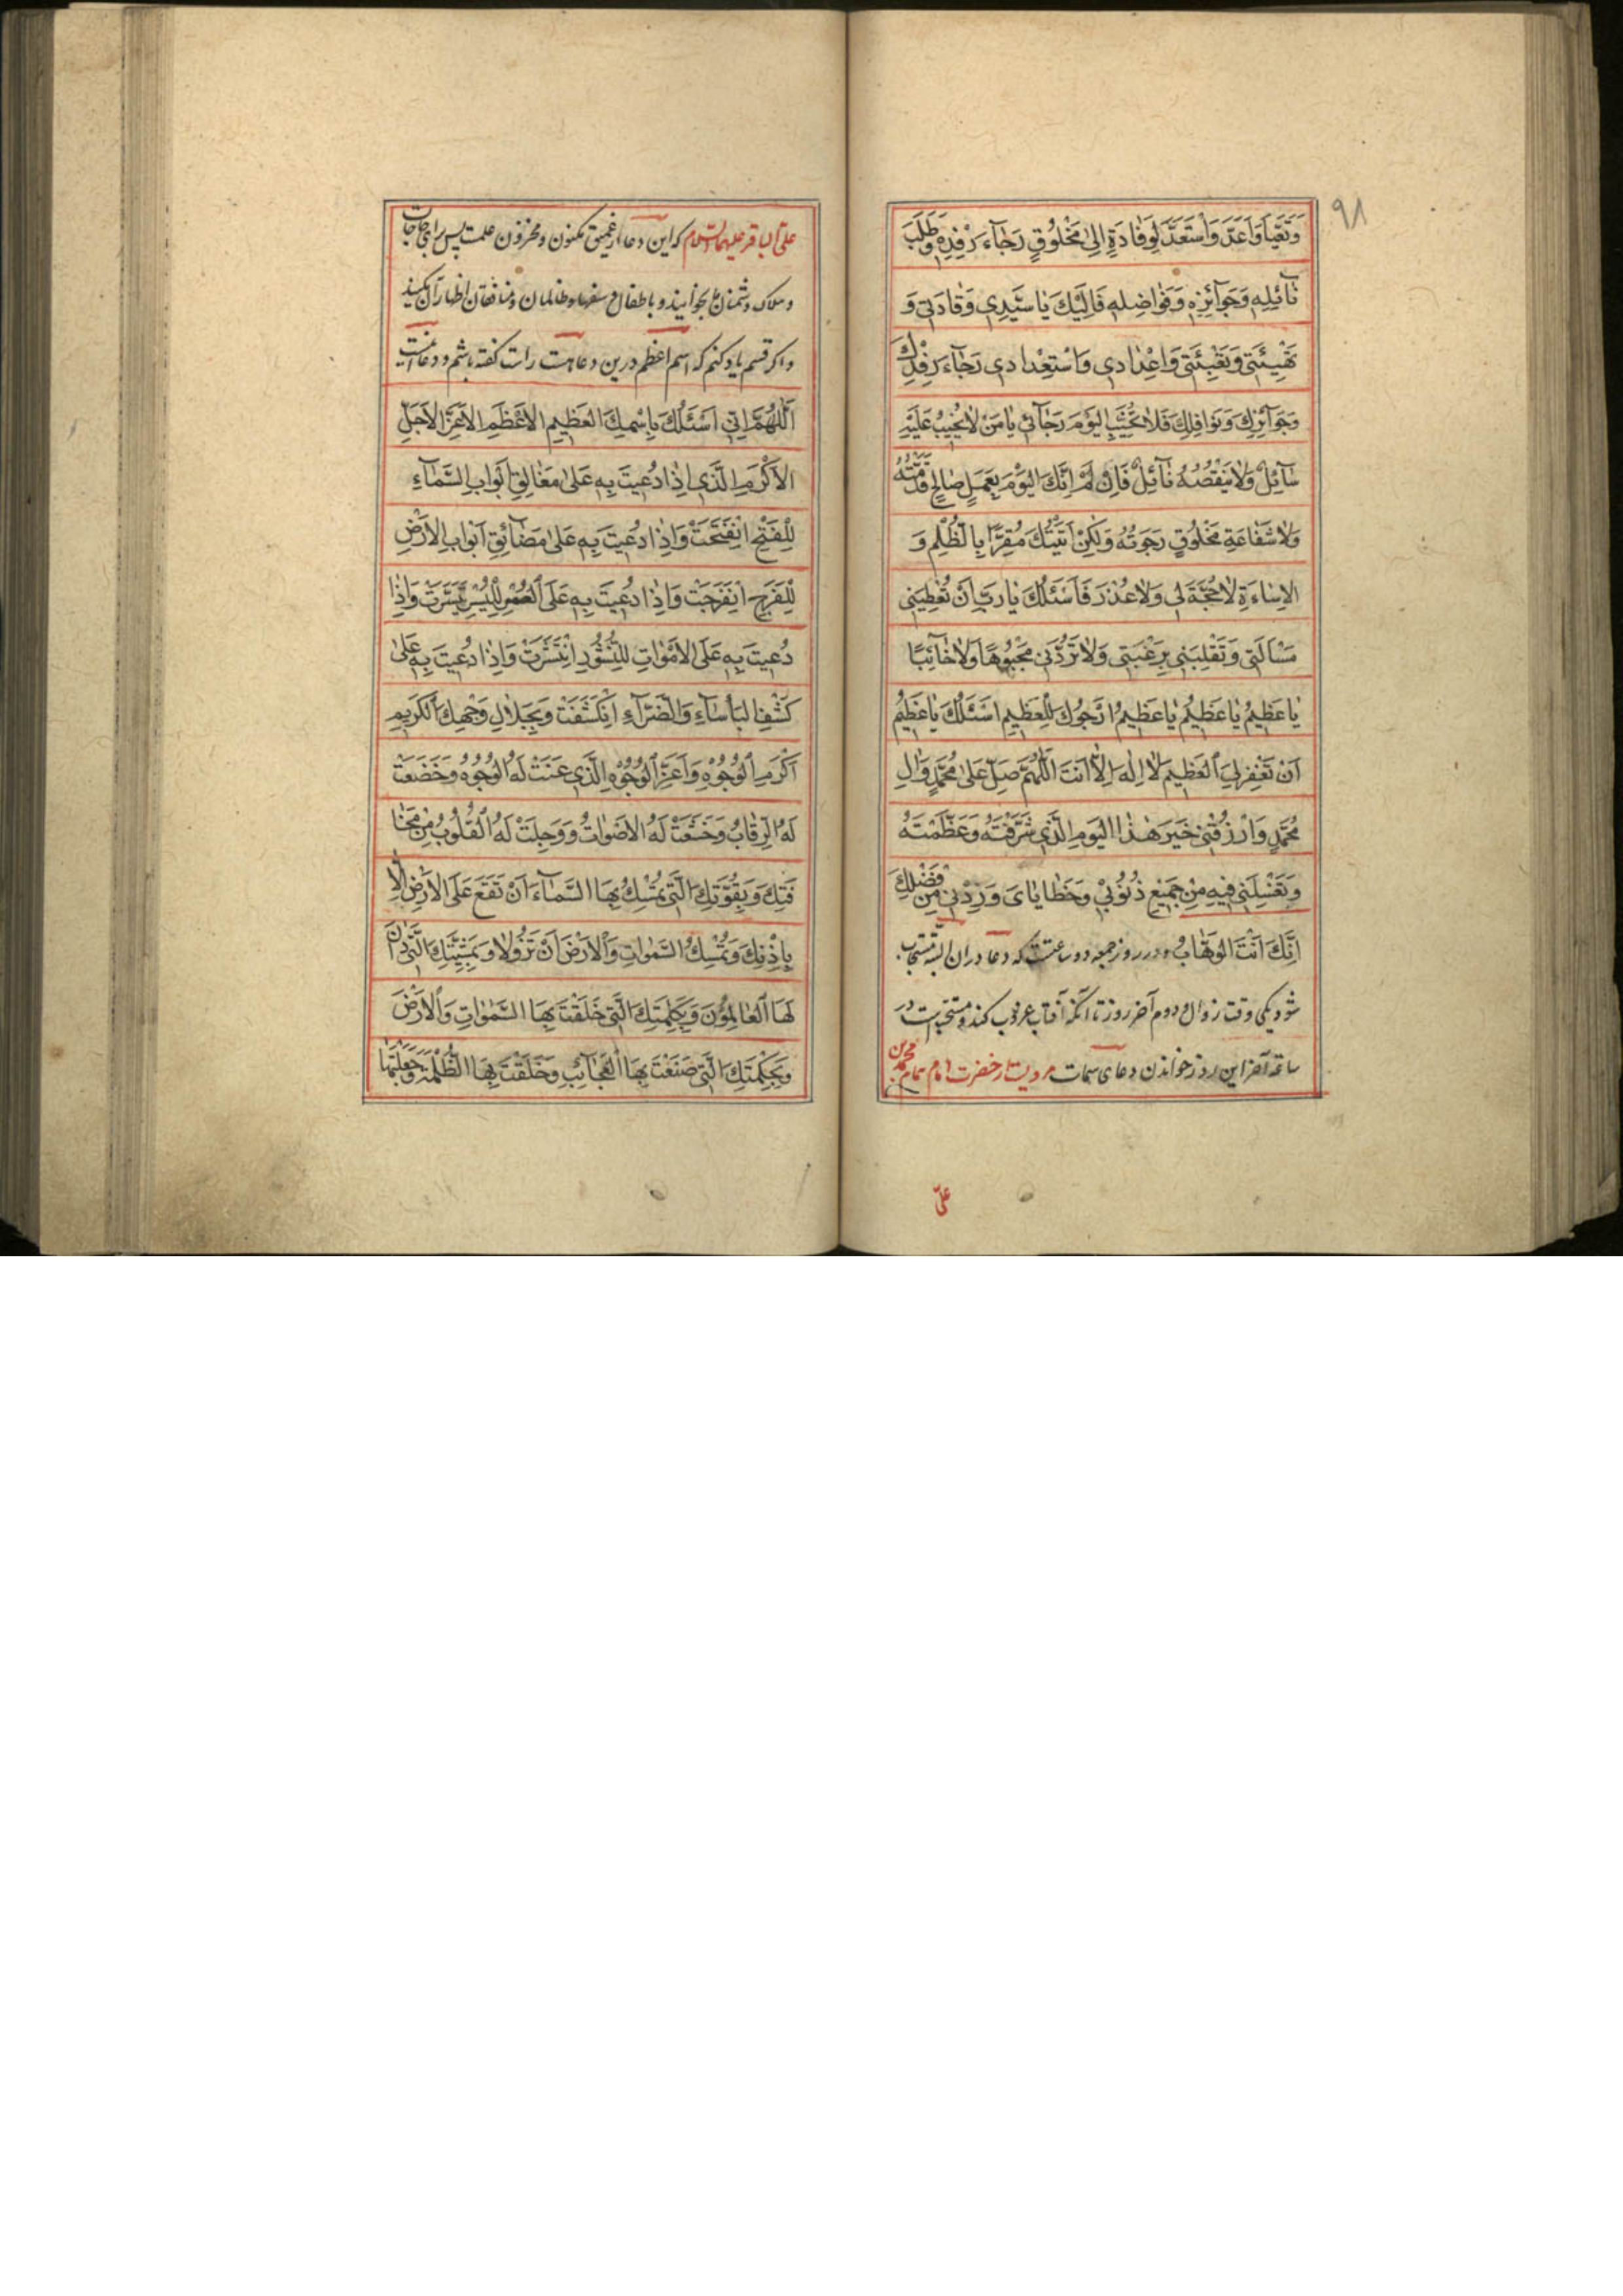 ٩٨
وَتَعَبَّأَ وَاَعَدَّ وَاسْتَعَدَّ لِوِفَادَةٍ اِلىٰ مَخْلُوقٍ رَجٰآءَ رِفْدِهِ وَطَلَبَ
نٰآئِلِهِ وَجَوٰآئِزِهِ وَفَوٰاضِلِهِ فَاِلَيْكَ يٰا سَيِّدِي وِفٰادَتِي وَ
تَهْيِئَتِي وَتَعْبِئَتِي وَاِعْدٰادِي وَاسْتِعْدٰادِي رَجٰآءَ رِفْدِكَ
وَجَوٰآئِزِكَ وَنَوٰافِلِكَ فَلٰا تُخَيِّبِ الْيَوْمَ رَجٰآئِي يٰا مَنْ لٰا يَخِيبُ عَلَيْهِ
سٰآئِلٌ وَلٰا يَنْقُصُهُ نٰآئِلٌ فَاِنّى لَمْ اٰتِكَ الْيَوْمَ بِعَمَلٍ صٰالِحٍ قَدَّمْتُهُ
وَلٰا شَفٰاعَةِ مَخْلُوقٍ رَجَوْتُهُ وَلٰكِنْ اَتَيْتُكَ مُقِرًّا بِالظُّلْمِ وَ
الْاِسٰاءَةِ لٰا حُجَّةَ لِي وَلٰا عُذْرَ فَاَسْئَلُكَ يٰا رَبِّ اَنْ تُعْطِيَنِي
مَسْأَلَتِي وَتَقْلِبَنِي بِرَغْبَتِي وَلٰا تَرُدَّنِي مَجْبُوهًا وَلٰا خٰآئِبًا
يٰا عَظِيمُ يٰا عَظِيمُ يٰا عَظِيمُ اَرْجُوكَ لِلْعَظِيمِ اَسْئَلُكَ يٰا عَظِيمُ
اَنْ تَغْفِرَ لِيَ الْعَظِيمَ لٰا اِلٰهَ اِلّٰا اَنْتَ اَللّٰهُمَّ صَلِّ عَلىٰ مُحَمَّدٍ وَاٰلِ
مُحَمَّدٍ وَارْزُقْنِي خَيْرَ هٰذَا الْيَوْمِ الَّذِي شَرَّفْتَهُ وَعَظَّمْتَهُ
وَتَغْسِلَنِي فِيهِ مِنْ جَمِيعِ ذُنُوبِي وَخَطٰايٰايَ وَزِدْنِي مِنْ فَضْلِكَ
اِنَّكَ اَنْتَ الْوَهّٰابُ و در روز جمعه دو ساعتست که دعا در ان البته مستجاب
شود یکی وقت زوال و دوم آخر روز تا آنکه آفتاب غروب کند و مستحبست در
ساعة آخر این روز خواندن دعای سمات مرویست از حضرت امام همام محمد بن
علی
علی الباقر علیهما السلام که این دعا از عمیق مکنون و مخزون علمست پس برای حاجات
و هلاک دشمنان بخوانید و باطفال و سفها و ظالمان و منافقان اظهار آن مکنید
و اکر قسم یاد کنم که اسم اعظم درین دعاست راست کفته باشم و دعا اینست
اَللّٰهُمَّ اِنِّي اَسْئَلُكَ بِاسْمِكَ الْعَظِيمِ الْاَعْظَمِ الْاَعَزِّ الْاَجَلِّ
الْاَكْرَمِ الَّذِي اِذٰا دُعِيتَ بِهِ عَلىٰ مَغٰالِقِ اَبْوٰابِ السَّمٰآءِ
لِلْفَتْحِ انْفَتَحَتْ وَاِذٰا دُعِيتَ بِهِ عَلىٰ مَضٰآئِقِ اَبْوٰابِ الْاَرْضِ
لِلْفَرَجِ انْفَرَجَتْ وَاِذٰا دُعِيتَ بِهِ عَلَى الْعُسْرِ لِلْيُسْرِ تَيَسَّرَتْ وَاِذٰا
دُعِيتَ بِهِ عَلَى الْاَمْوٰاتِ لِلنُّشُورِ انْتَشَرَتْ وَاِذٰا دُعِيتَ بِهِ عَلىٰ
كَشْفِ الْبَأْسٰآءِ وَالضَّرّٰآءِ انْكَشَفَتْ وَبِجَلٰالِ وَجْهِكَ الْكَرِيمِ
اَكْرَمِ الْوُجُوهِ وَاَعَزِّ الْوُجُوهِ الَّذِي عَنَتْ لَهُ الْوُجُوهُ وَخَضَعَتْ
لَهُ الرِّقٰابُ وَخَشَعَتْ لَهُ الْاَصْوٰاتُ وَوَجِلَتْ لَهُ الْقُلُوبُ مِنْ مَخٰا
فَتِكَ وَبِقُوَّتِكَ الَّتِي تُمْسِكُ بِهَا السَّمٰآءَ اَنْ تَقَعَ عَلَى الْاَرْضِ اِلّٰا
بِاِذْنِكَ وَتُمْسِكُ السَّمٰوٰاتِ وَالْاَرْضَ اَنْ تَزُولٰا وَبِمَشِيَّتِكَ الَّتِي دٰانَ
لَهَا الْعٰالَمُونَ وَبِكَلِمَتِكَ الَّتِي خَلَقْتَ بِهَا السَّمٰوٰاتِ وَالْاَرْضَ
وَبِحِكْمَتِكَ الَّتِي صَنَعْتَ بِهَا الْعَجٰآئِبَ وَخَلَقْتَ بِهَا الظُّلْمَةَ وَجَعَلْتَهٰا